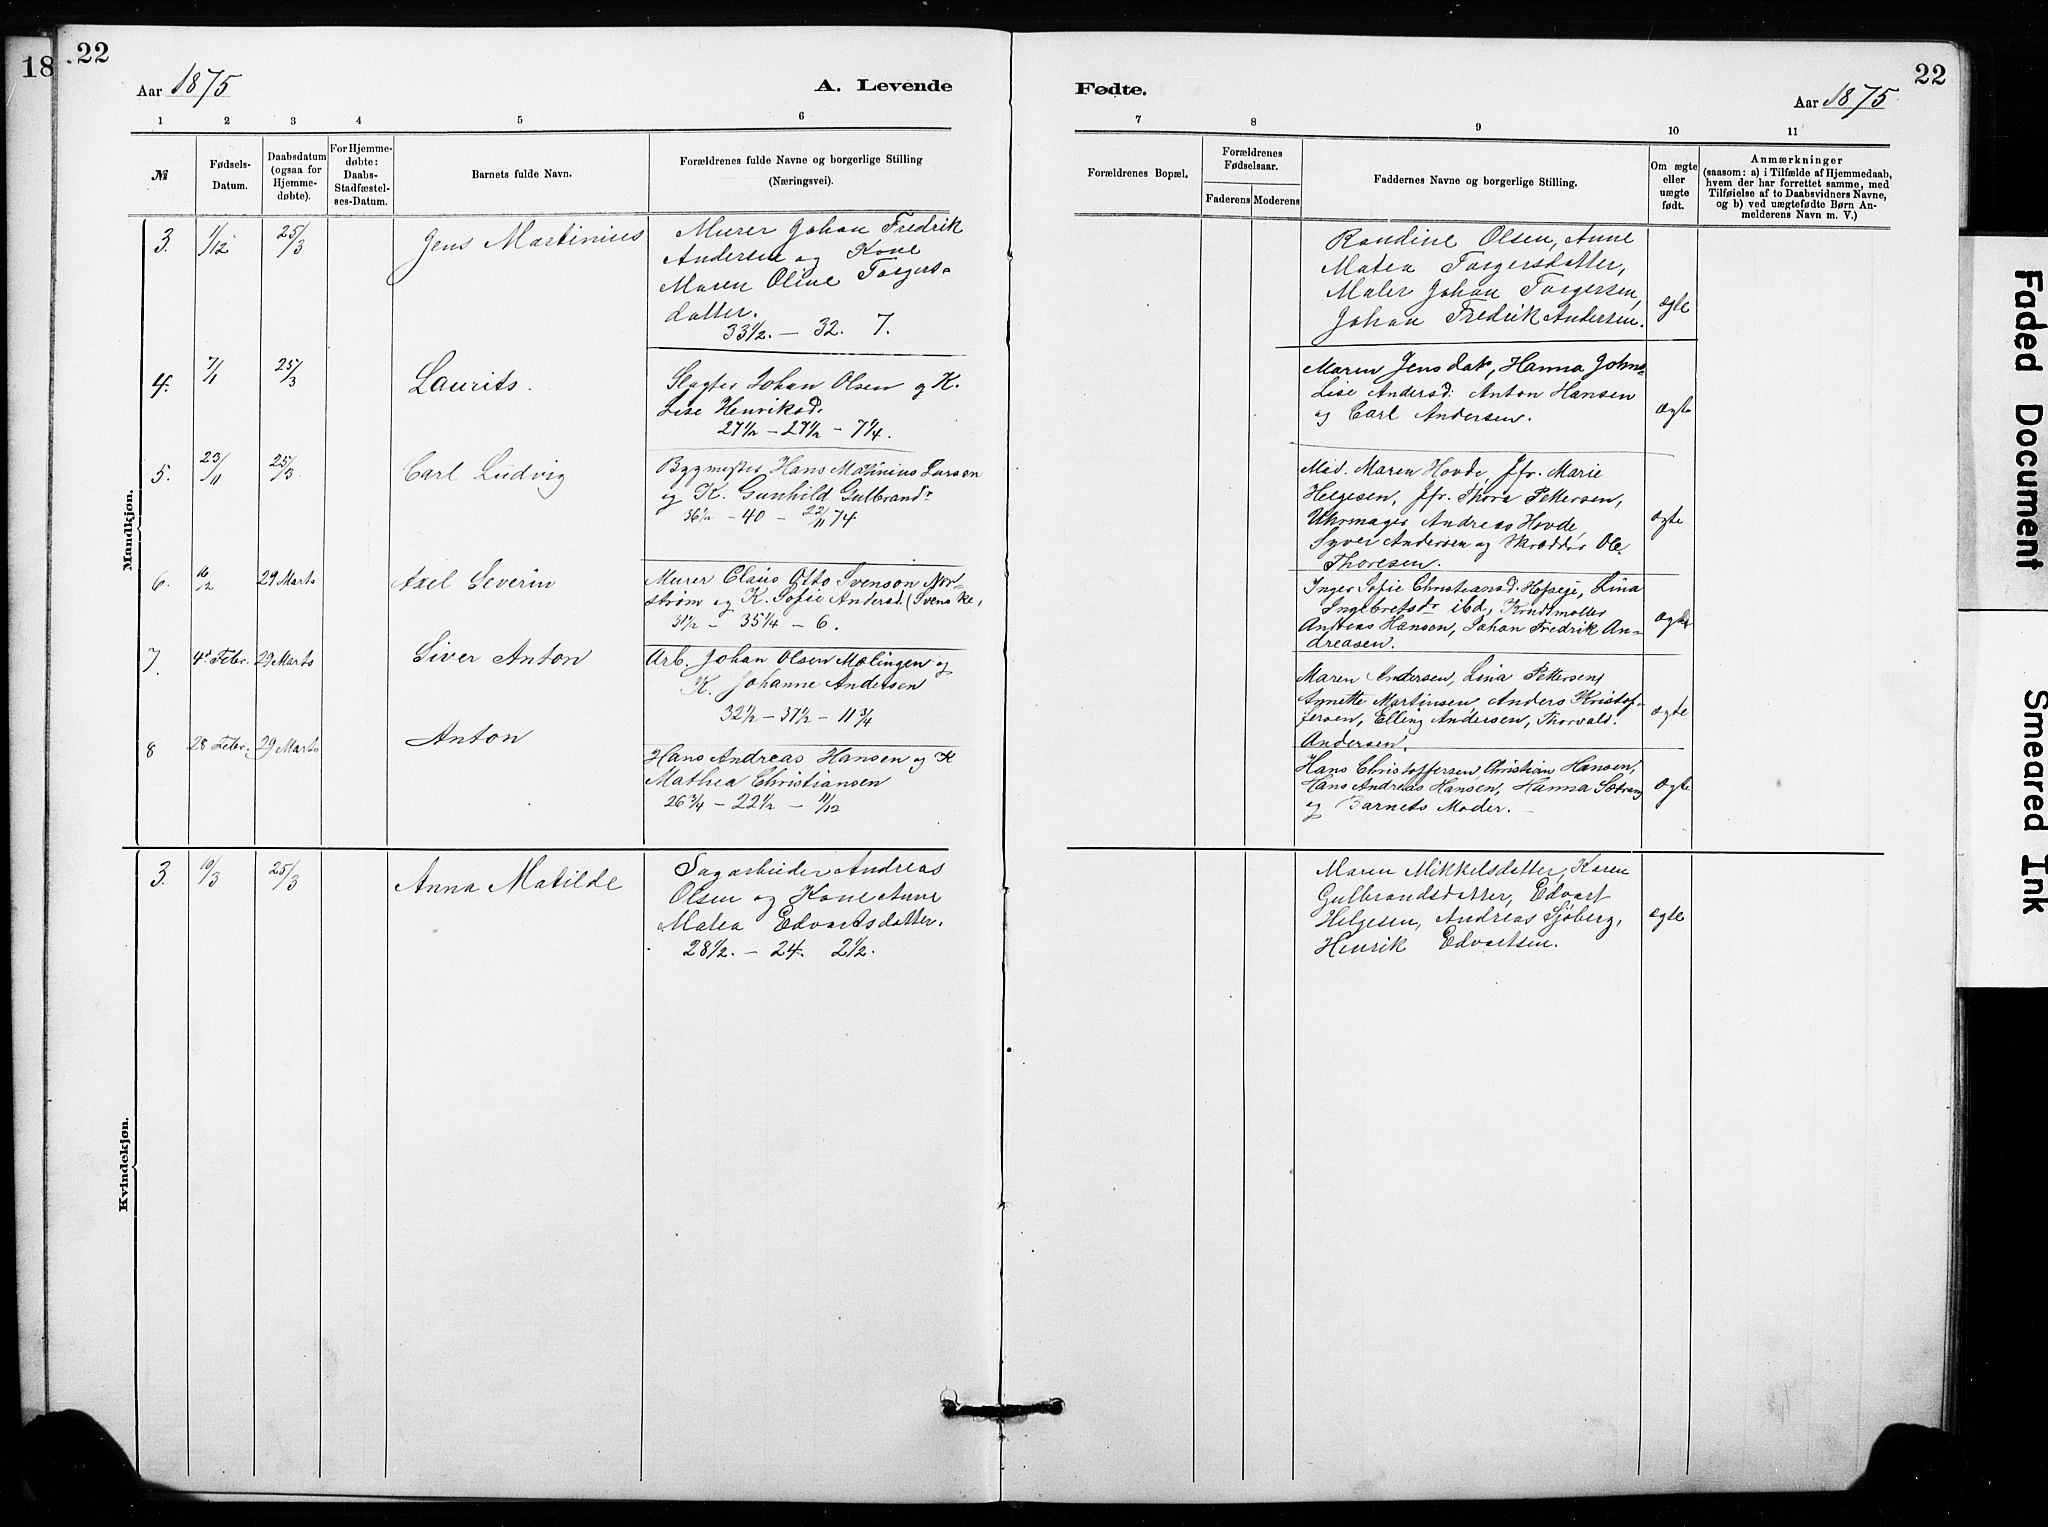 18
22
Aar 1875
A. Levende
1 2 3 4 5 6
№
Fødsels-
Datum.
Daabsdatum
(ogsaa for
Hjemme-
døbte).
For Hjemme-
døbte:
Daabs-
Stadfæstel-
ses-Datum.
Barnets fulde Navn.
Forældrenes fulde Navne og borgerlige Stilling
(Næringsvei).
Mandkjøn.
3. 1/12 25/3 Jens Martinius
Murer Johan Fredrik
Andersen og Kone
Maren Oline Torgers-
datter.
33 1/2. - 32. 7.
4. 7/11 25/3 Laurits.
Slagter Johan Olsen og K.
Lise Henriksd.
27 1/2 - 27 1/2 - 7 1/4.
5. 23/11 25/3. Carl Ludvig
Bygmester Hans Matinius Larsen
og K. Gunhild Gulbrandsdr
36 1/2 - 40 - 22/11 74
6. 16/2 29 Marts Axel Severin
Murer Claus Otto Svenson Nor-
strøm og K. Sofie Andersd. (Svenske,
31 1/2 - 35 1/4 - 6.
7. 4de Febr. 29 Marts Siver Anton
Arb. Johan Olsen Mælingen og
K. Johanne Andersen
32 1/2 - 37 1/2 - 11 3/4
8 28 Febr. 29 Marts Anton
Hans Andreas Hansen og K
Mathea Christiansen
26 3/4 - 22 1/2 - 11/12
Kvindekjøn.
3. 10/3 25/3 Anna Matilde
Sagarbeider Andreas
Olsen og Kone Anne
Matea Edvartsdatter.
28 1/2. - 24. 2 1/2.
Fødte.
22
Aar 1875.
7 8 9 10 11
Forældrenes Bopæl.
Forældrenes
Fødselsaar.
Faderens Moderens
Faddernes Navne og borgerlige Stilling.
Om ægte
eller
uægte
født.
Anmærkninger
(saasom: a) i Tilfælde af Hjemmedaab,
hvem der har forrettet samme, med
Tilføielse af to Daabsvidners Navne,
og b) ved uægtefødte Børn An-
melderens Navn m. V.)
Randine Olsen, Anne
Matea Torgersdatter,
Maler Johan Torgersen,
Johan Fredrik Andersen.
ægte
Maren Jensdat, Hanna Johns-
Lise Andersd: Anton Hansen
og Carl Andersen.
ægte
Mad. Maren Hovde, Jfr. Marie
Helgesen, Jfr. Thora Pettersen,
Uhrmager Andreas Hovde,
Syver Andersen og Skrædder Ole
Thoresen.
ægte
Inger Sofie Christiansd. Hofseje, Lina
Ingebretsdr ibd, Krudtmøller
Andreas Hansen, Johan Fredrik An-
dreasen.
ægte
Maren Andersen, Lina Pettersen,
Annette Martinsen Anders Kristof-
fersen, Elling Andersen, Thorvald
Andersen.
ægte
Hans Christoffersen, Christian Hansen,
Hans Andreas Hansen, Hanna Sætrang
og Barnets Moder.
ægte
Maren Mikkelsdatter, Karen
Gulbrandsdatter, Edvart
Helgesen, Andreas Sjøberg,
Henrik Edvartsen.
ægte
Faded Document
Smeared Ink